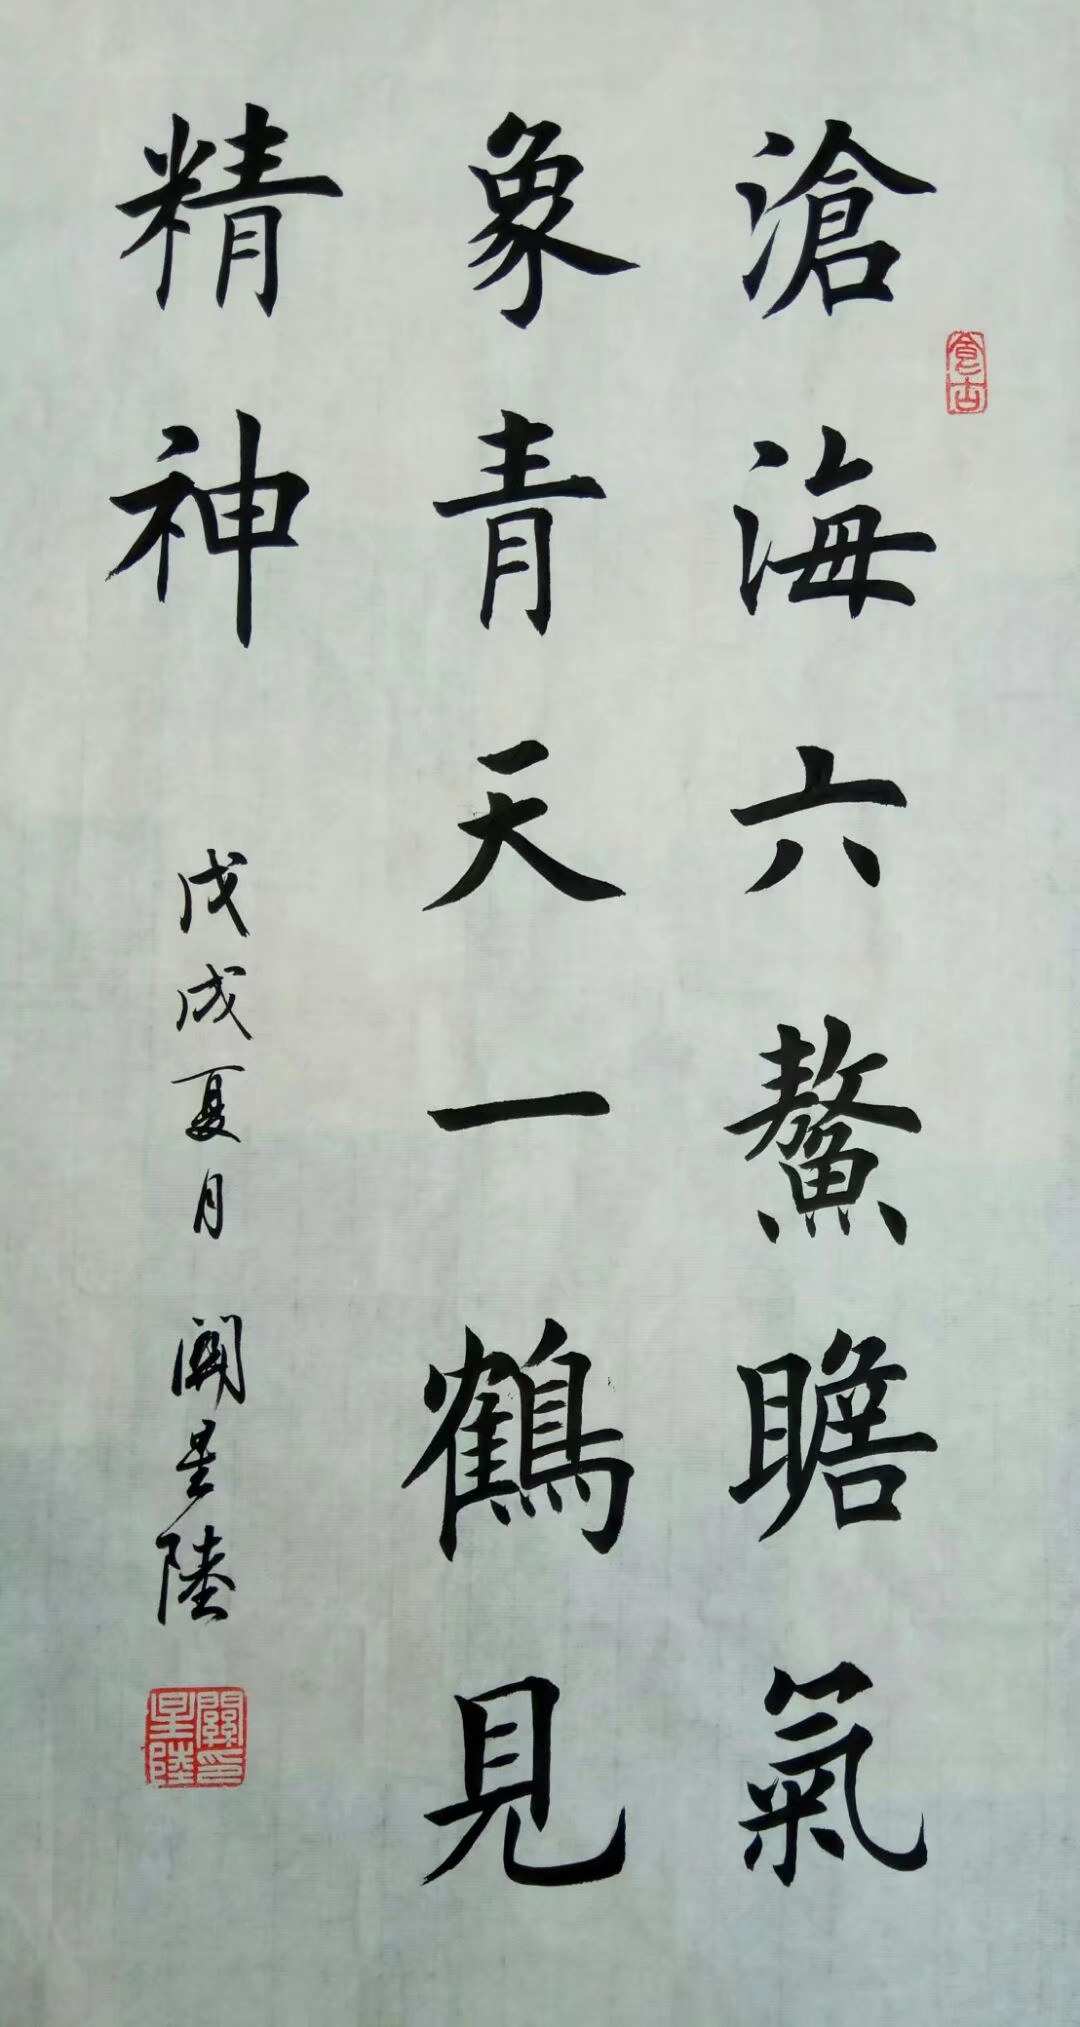 滄海六鰲瞻氣
象青天一鶴見
精神
戊戌夏月 關星陸
關星陸印